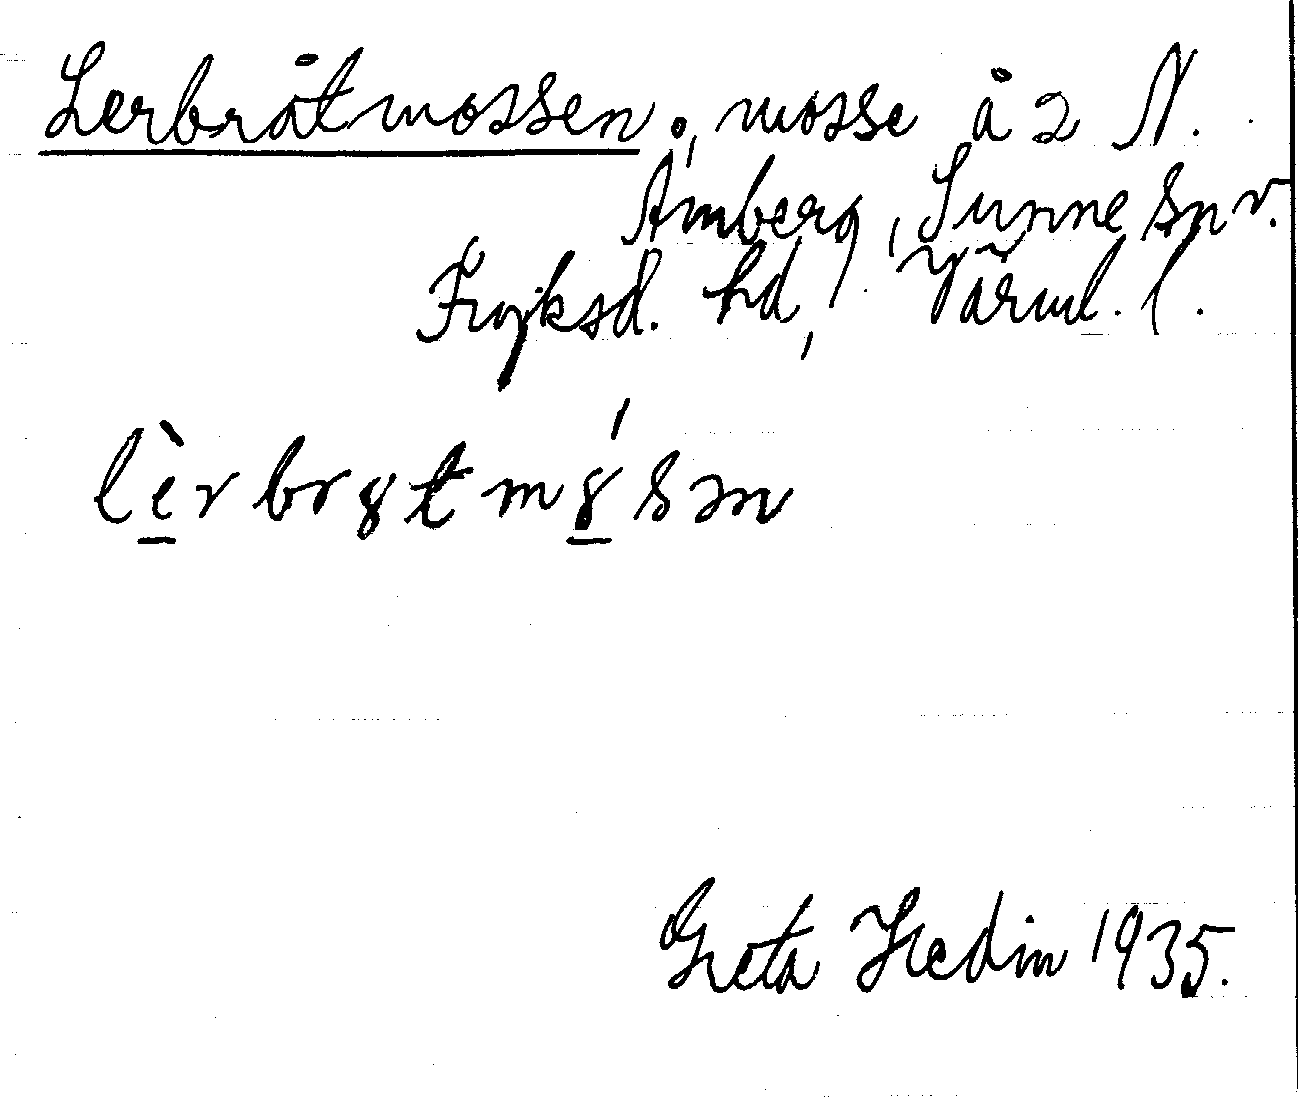 Lerbråtmossen, mosse å 2 N.
Åmberg, Sunne sn v.
Fryksd. hd, Värml. l.
lèrbrꝏtmꝏ́sən
Greta Hedin 1935.